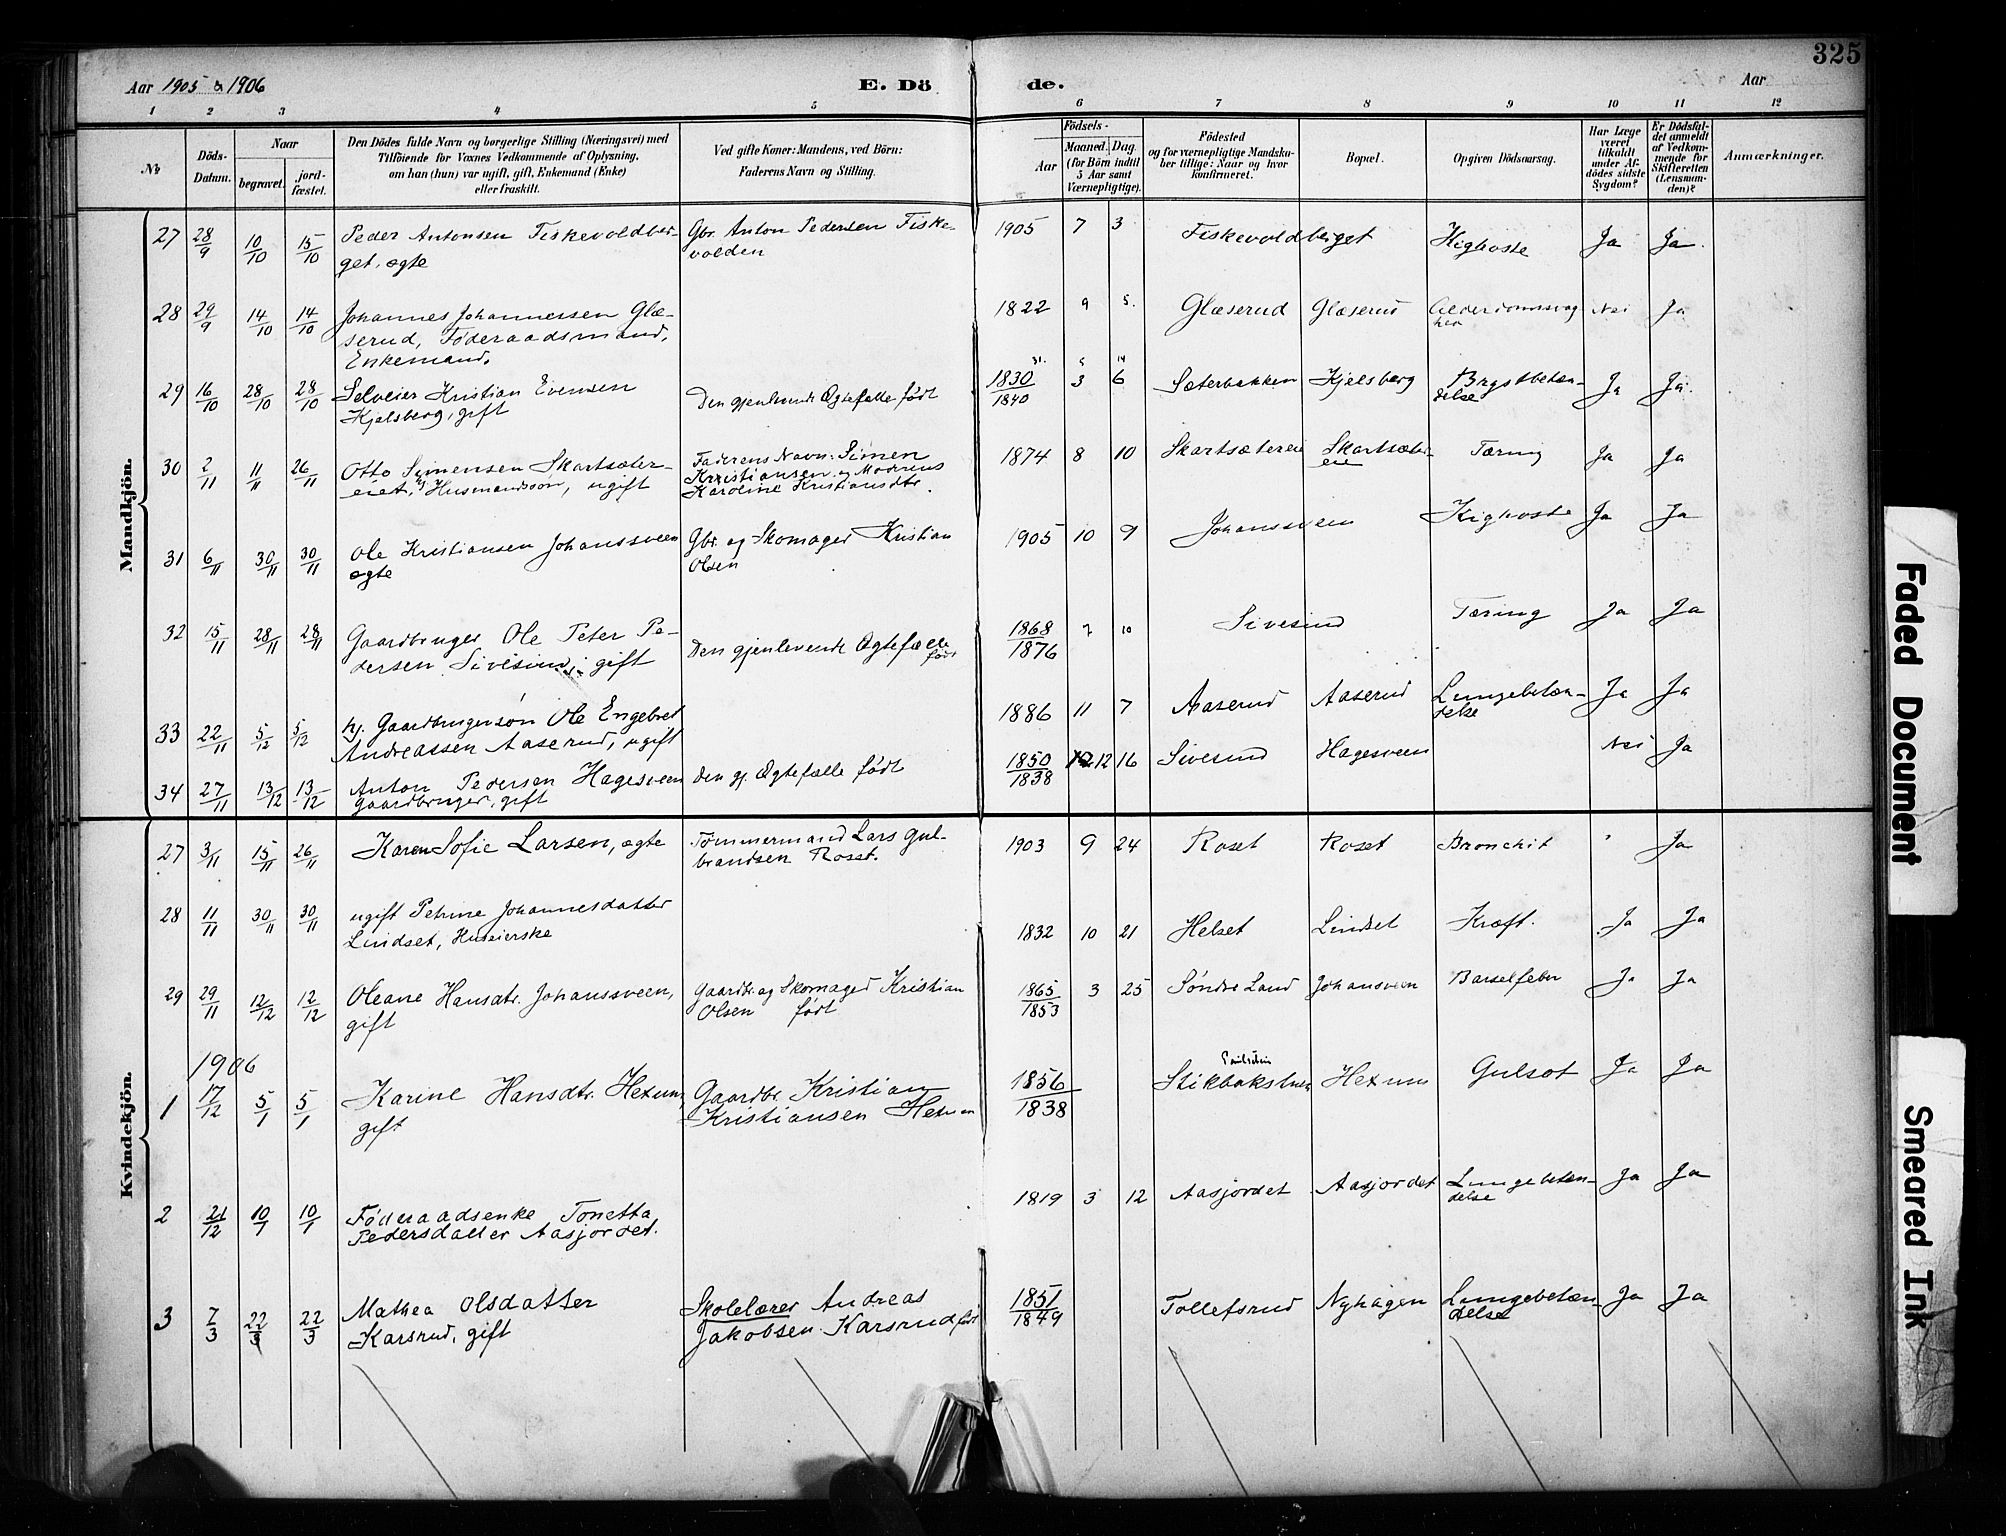 325
Aar 1905 & 1906
E. Dö de.
Aar
1 2 3 4 5 6 7 8 9 10 11 12
Nr.
Döds-Datum.
Naar
begravet.
jord-fæstet.
Den Dödes fulde Navn og borgerlige Stilling (Næringsvei) med
Tilföiende for Voxnes Vedkommende af Oplysning,
om han (hun) var ugift, gift, Enkemand (Enke)
eller fraskilt.
Ved gifte Koner: Mandens, ved Börn:
Faderens Navn og Stilling.
Födsels-
Aar
Maaned. Dag.
(for Börn indtil
5 Aar samt
Værnepligtige).
Födested
og for værnepligtige Mandska-
ber tillige: Naar og hvor
konfirmeret.
Bopæl.
Opgiven Dödsaarsag.
Har Læge
været
tilkaldt
under Af-
dödes sidste
Sygdom?
Er Dödsfal-
det anmeldt
af Vedkom-
mende for
Skifteretten
(Lensman-
den)?
Anmærkninger.
Mandkjön.
27 28/9 10/10 15/10 Peder Antonsen Fiskevoldber- Gbr. Anton Pedersen Fiske- 1905 7 3 Fiskevoldberget Kighoste Ja Ja.
get, ægte volden
28 29/9 14/10 14/10 Johannes Johannessen Glæ- 1822 9 5. Glæserud Glæserud Alderdomssvag Nei Ja
serud, Føderaadsmand, hed
Enkemand.
31. 5 14
29 16/10 28/10 28/10 Selveier Kristian Evensen Den gjenlevende Ægtefælle født 1830/1840 3 6 Sæterbakken Kjelsberg Brystbetæn- Ja Ja.
Kjelsberg, gift delse
30 2/11 11/11 26/11 Otto Simensen Skartsæter- Faderens Navn: Simen 1874 8 10 Skartsætereie Skartsæter Tæring Ja Ja
eiet, hj. Husmandssøn, ugift Kristiansen og Moderens eie
Karoline Kristiansdtr.
31 6/11 30/11 30/11 Ole Kristiansen Johanssveen Gbr. og Skomager Kristian 1905 10 9 Johanssveen Kighoste Ja Ja
ægte Olsen
32 15/11 28/11 28/11 Gaardbruger Ole Peter Pe- Den gjenlevende Ægtefælle 1868/1876 7 10 Sivesind Tæring Ja Ja
dersen Sivesind, gift født
33 22/11 5/12 5/12 hj. Gaardbrugersøn Ole Engebret 1886 11 7 Aaserud Aaserud Lungebetæn- Ja Ja
Andreassen Aaserud, ugift delse
34 27/11 13/12 13/12 Anton Pedersen Hagesveen Den gj. Ægtefælle født 1850/1838 12 16 Sivesind Hagesveen Nei Ja
Gaardbruger, gift
Kvindekjön.
27 3/11 15/11 26/11 Karen Sofie Larsen, ægte Tømmermand Lars Gul- 1903 9 24 Roset Roset Bronchit " Ja
brandsen Roset.
28 11/11 30/11 30/11 ugift Petrine Johannesdatter 1832 10 21 Helset Lindset Kræft. Ja Ja
Lindset, Huseierske
29 29/11 12/12 12/12 Oleane Hansdtr. Johanssveen, Gaardbr. og Skomager Kristian 1865/1853 3 25 Søndre Land Johansveen Barselfeber Ja Ja
gift Olsen født
1906
1 17/12 5/1 5/1 Karine Hansdtr. Hexum, Gaardbr. Kristian 1856/1838 Hexum Gulsot Ja Ja
gift Kristiansen Hexum
2 21/12 10/1 10/1 Føderaadsenke Tonetta 1819 3 12 Aasjordet Aasjordet Lungebetæn- Ja Ja
Pedersdatter Aasjordet. delse
3 7/3 22/3 22/3 Mathea Olsdatter Skolelærer Andreas 1851/1849 Tollefsrud Nyhagen Lungebetæn- Ja Ja
Karsrud, gift Jakobsen Karsrud født delse
Faded Document
Smeared Ink